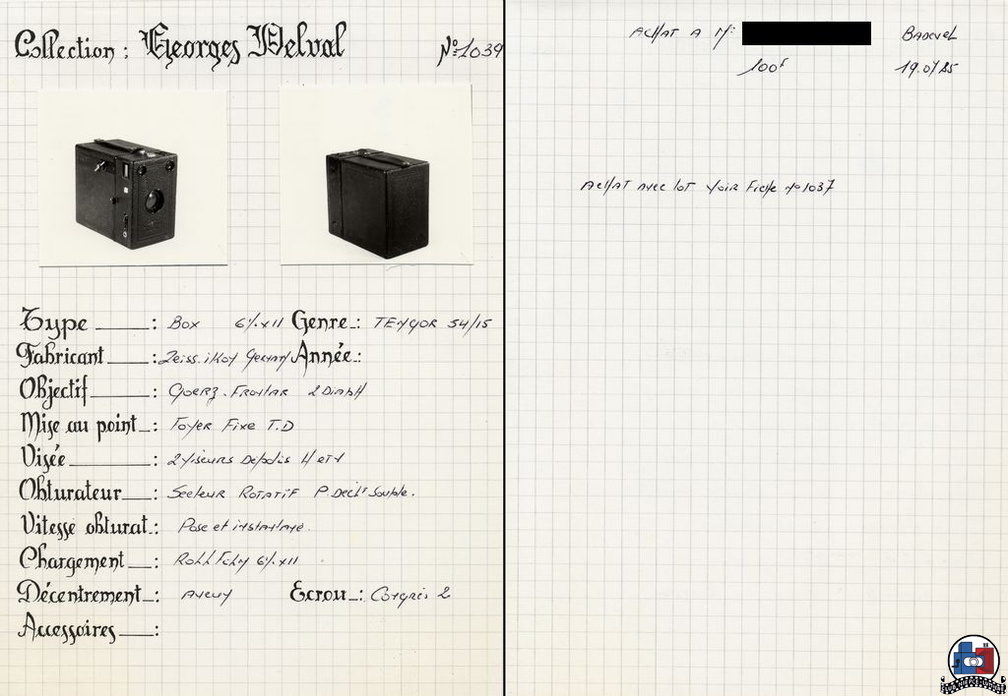 Collection : Georges Delval N° 1039
Type : Box 6½x11 Genre : TENGOR 54/15
Fabricant : Zeiss.ikon Germany Année :
Objectif : Goerz. Frontar 2 Diaph
Mise au point : Foyer Fixe T.D
Visée : 2 Viseurs Dépolis H et V
Obturateur : Secteur Rotatif P Declt Souple.
Vitesse obturat : Pose et instantané.
Chargement : Roll Film 6½x11
Décentrement : Aucun Ecrou : Congrès 2
Accessoires :
ACHAT A Mr BADEVEL
100F 19.0785
ACHAT avec lot Voir Fiche N°1037